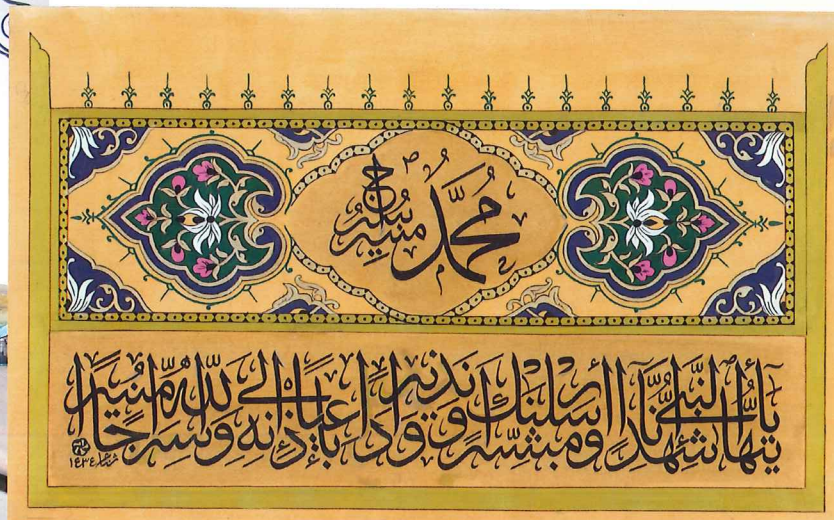 محمد سراج منير
يأيها النبي إنا أرسلنك شهدا ومبشرا ونذيرا وداعيا إلى الله بإذنه وسراجا منيرا
١٤٣٤